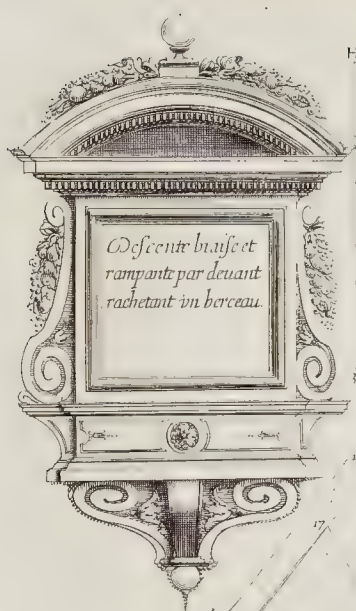 Descente biaise et
rampante par devant
rachetant vn berceau.
H
17